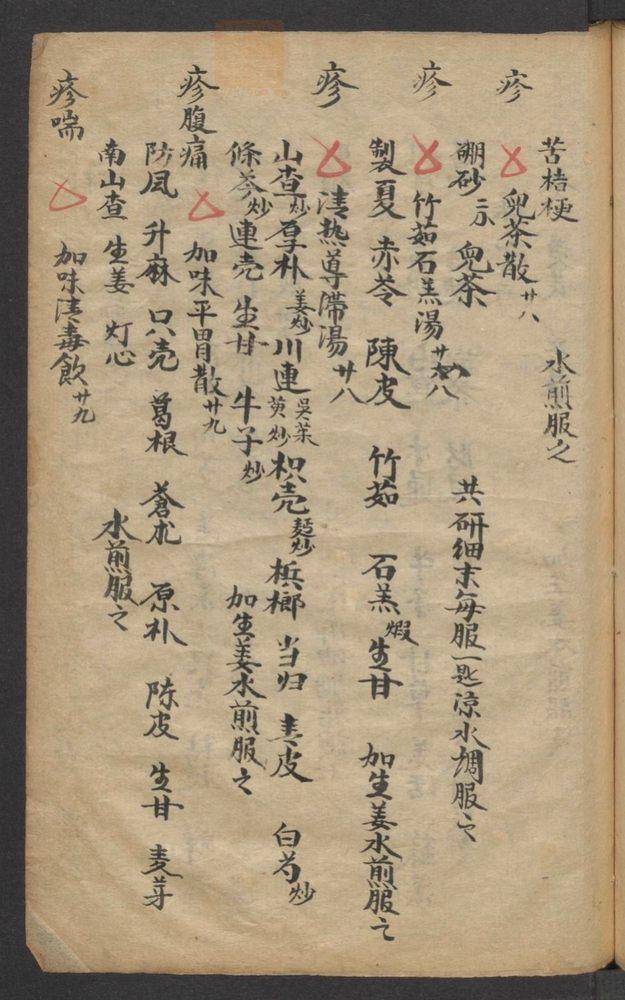 苦桔梗 水煎服之
疹 兒茶散 廿八
硼砂 二小 兒茶 共研细末每服一匙凉水調服之
疹 竹茹石羔湯 廿八
製夏 赤苓 陳皮 竹茹 石羔煅 生甘 加生姜水煎服之
疹 清热導滯湯 廿八
山查炒 厚朴姜炒 川連吳茱萸炒 枳壳麸炒 槟榔 当归 青皮 白芍炒
條芩炒 連壳 生甘 牛子炒 加生姜水煎服之
疹腹痛 加味平胃散 廿九
防风 升麻 只壳 葛根 蒼朮 原朴 陈皮 生甘 麦芽
南山查 生姜 灯心 水煎服之
疹喘 加味清毒飲 廿九